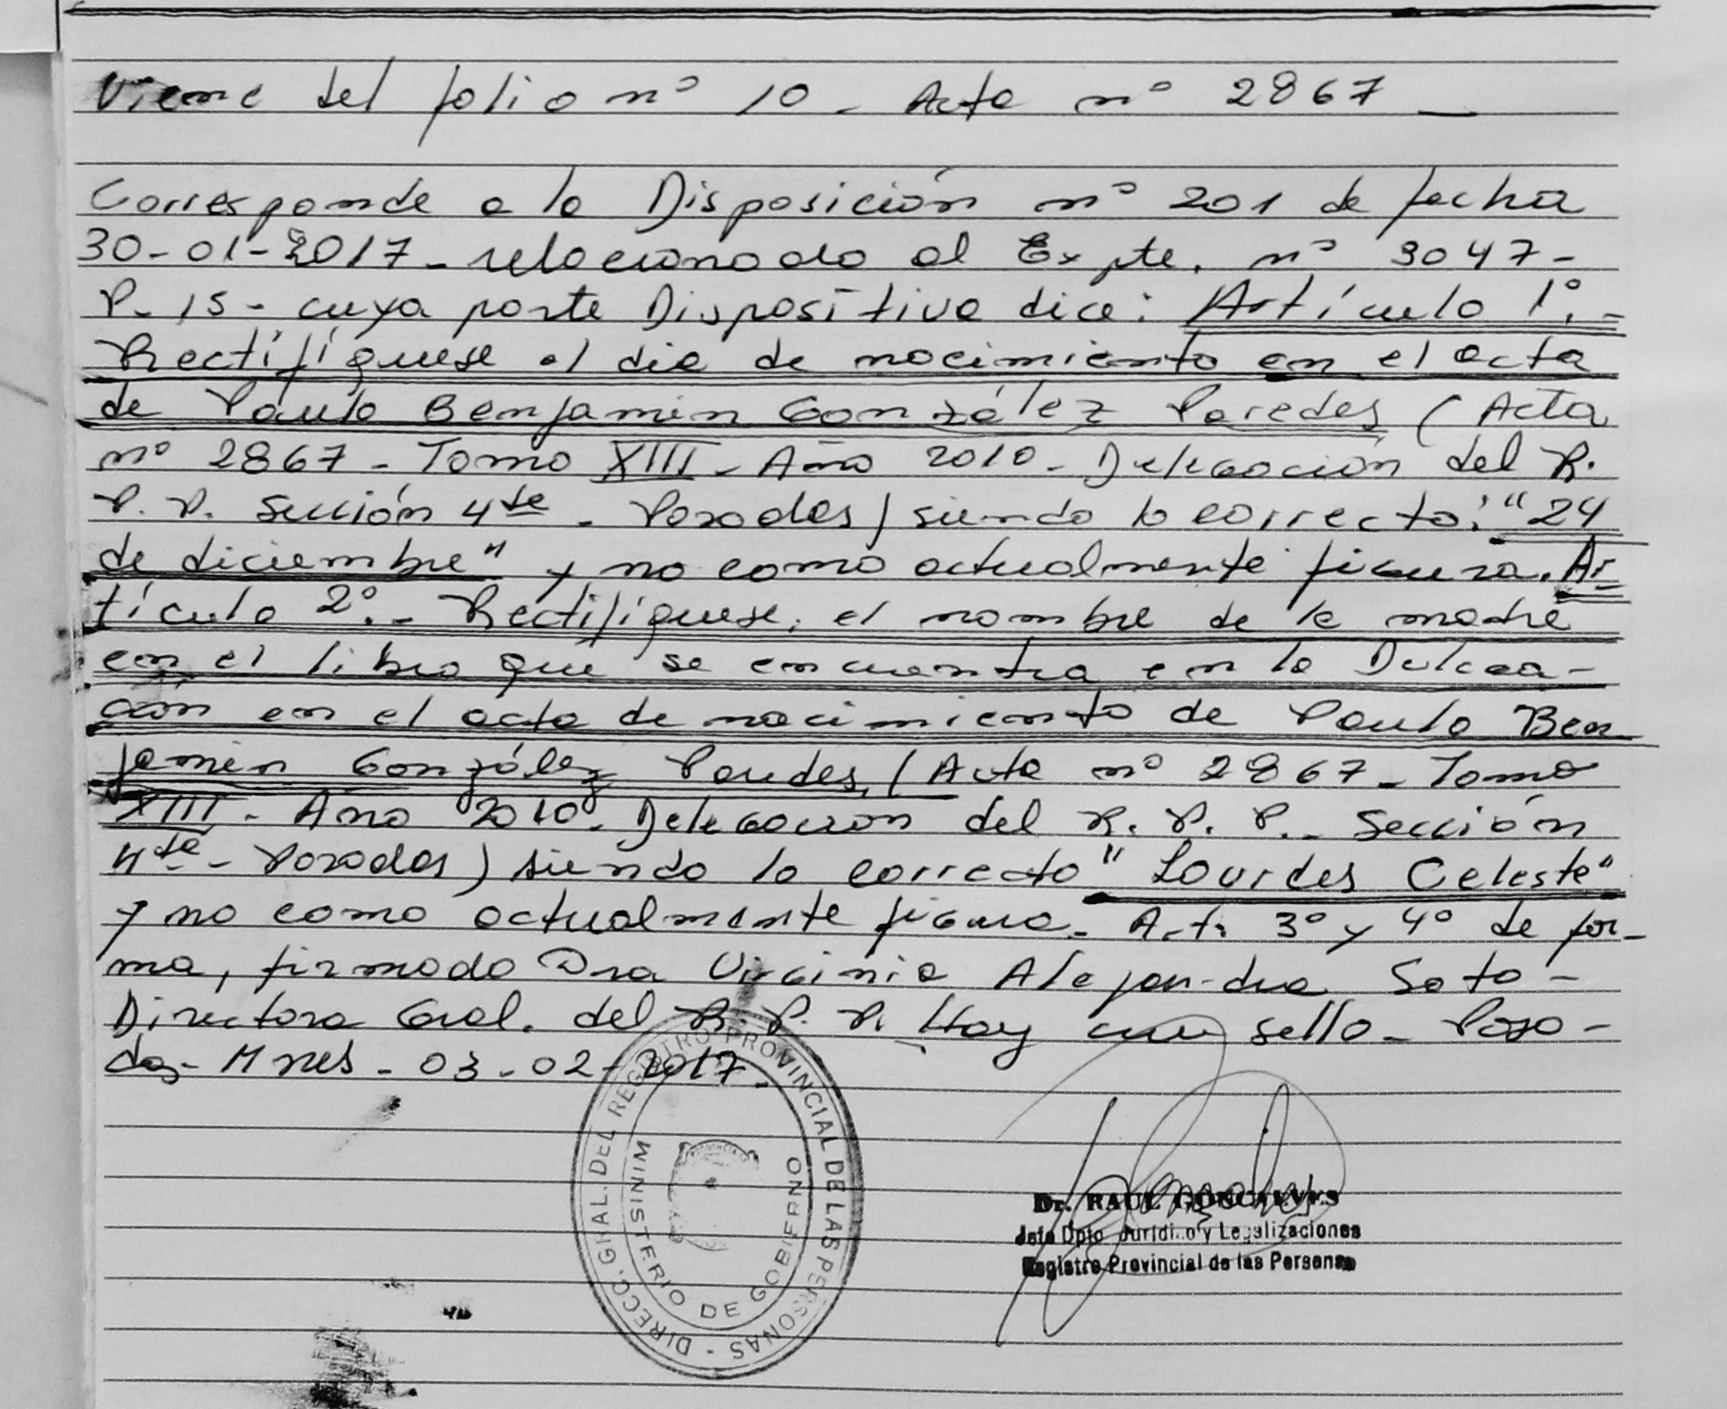 Viene del folio nº 10 - Acta nº 2867 -
Corresponde a la Disposición nº 201 de fecha
30-01-2017 - relacionado al Expte. nº 3047-
P-15 - cuya parte Dispositiva dice: Artículo 1º.-
Rectifíquese el dia de nacimiento en el acta
de Paulo Benjamin González Paredes (Acta
nº 2867 - Tomo XIII - Año 2010 - Delegación del R.
P. P. Sección 4ta - Posadas) siendo lo correcto: "24
de diciembre" y no como actualmente figura. Ar-
tículo 2º.- Rectifíquese, el nombre de la madre
en el libro que se encuentra en la Delega-
ción en el acta de nacimiento de Paulo Ben
jamin González Paredes, (Acta nº 2867 - Tomo
XIII - Año 2010 - Delegacion del R. P. P. - Sección
4ta - Posadas) siendo lo correcto "Lourdes Celeste"
y no como actualmente figura - Art. 3º y 4º de for-
ma, firmado Dra Virginia Alejandra Soto -
Directora Gral. del R. P. P. Hay un sello - Posa-
das - Mnes - 03-02-2017 -
DIRECC. GRAL. DEL REGISTRO PROVINCIAL DE LAS PERSONAS -
MINISTERIO DE GOBIERNO
Dr. RAUL GONCALVES
Jefe Dpto Juridico y Legalizaciones
Registro Provincial de las Personas